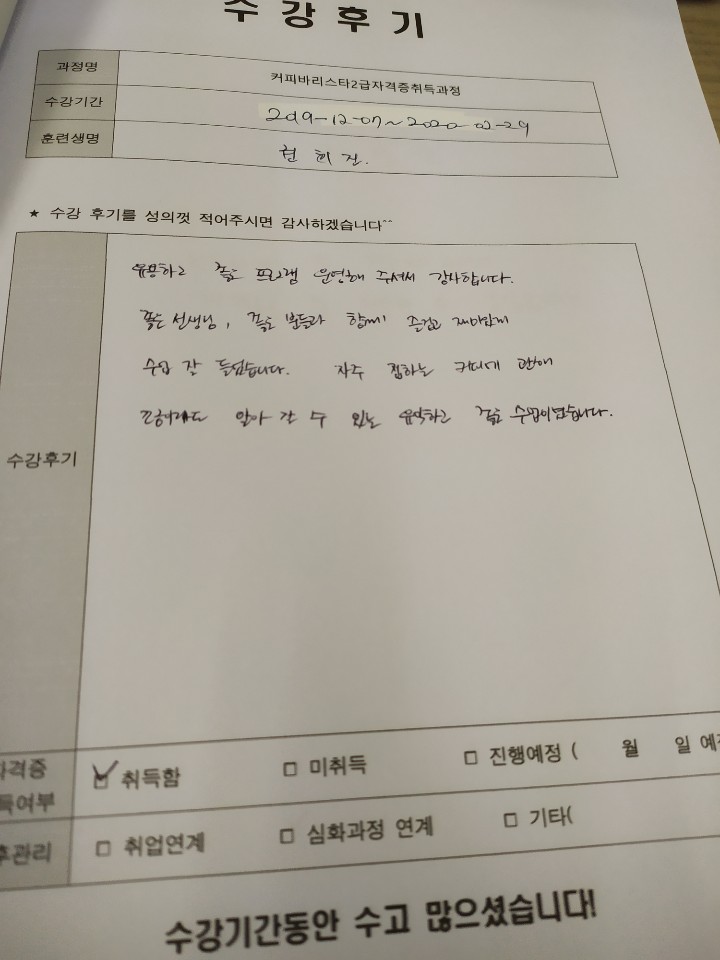 수강후기
과정명 커피바리스타2급자격증취득과정
수강기간 2019-12-07~2020-02-29
훈련생명 권희진.
★ 수강 후기를 성의껏 적어주시면 감사하겠습니다^^
유용하고 좋은 프로그램 운영해 주셔서 감사합니다.
좋은 선생님, 좋은 분들과 함께 즐겁고 재미있게
수업 잘 들었습니다. 자주 접하는 커피에 관해
알아 갈 수 있는 유익하고 좋은 수업이었습니다.
수강후기
자격증
득여부 취득함 □ 미취득 □ 진행예정 ( 월 일 예정
후관리 □ 취업연계 □ 심화과정 연계 □ 기타(
수강기간동안 수고 많으셨습니다!